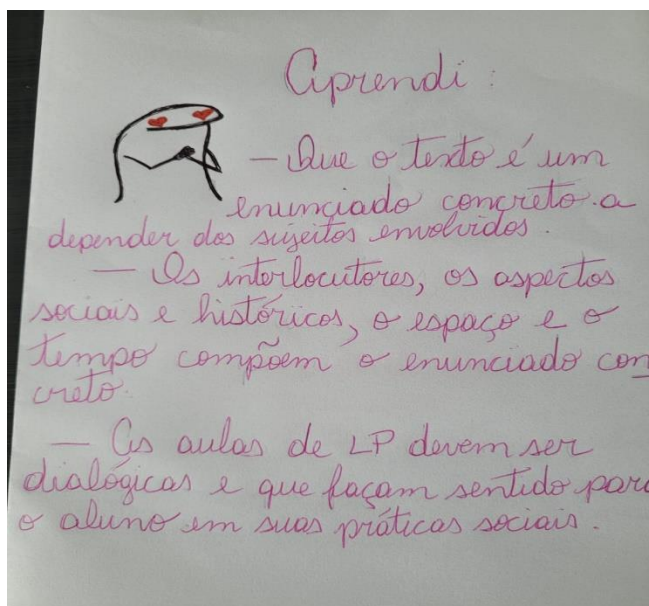 Aprendi:
— Que o texto é um
enunciado concreto a
depender dos sujeitos envolvidos.
— Os interlocutores, os aspectos
sociais e históricos, o espaço e o
tempo compõem o enunciado con
creto.
— As aulas de LP devem ser
dialógicas e que façam sentido para
o aluno em suas práticas sociais.